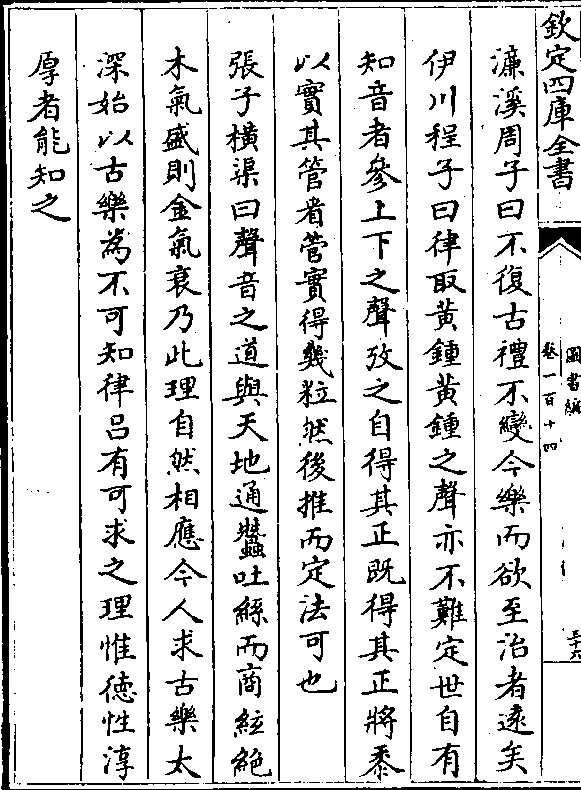 欽定四庫全書
圖書編
卷一百十四
三十六
濂溪周子曰不復古禮不變今樂而欲至治者遠矣
伊川程子曰律取黃鍾黃鍾之聲亦不難定世自有
知音者參上下之聲攷之自得其正既得其正將黍
以實其管看管實得幾粒然後推而定法可也
張子橫渠曰聲音之道與天地通蠶吐絲而商絃絕
木氣盛則金氣衰乃此理自然相應今人求古樂太
深始以古樂為不可知律呂有可求之理惟德性淳
厚者能知之